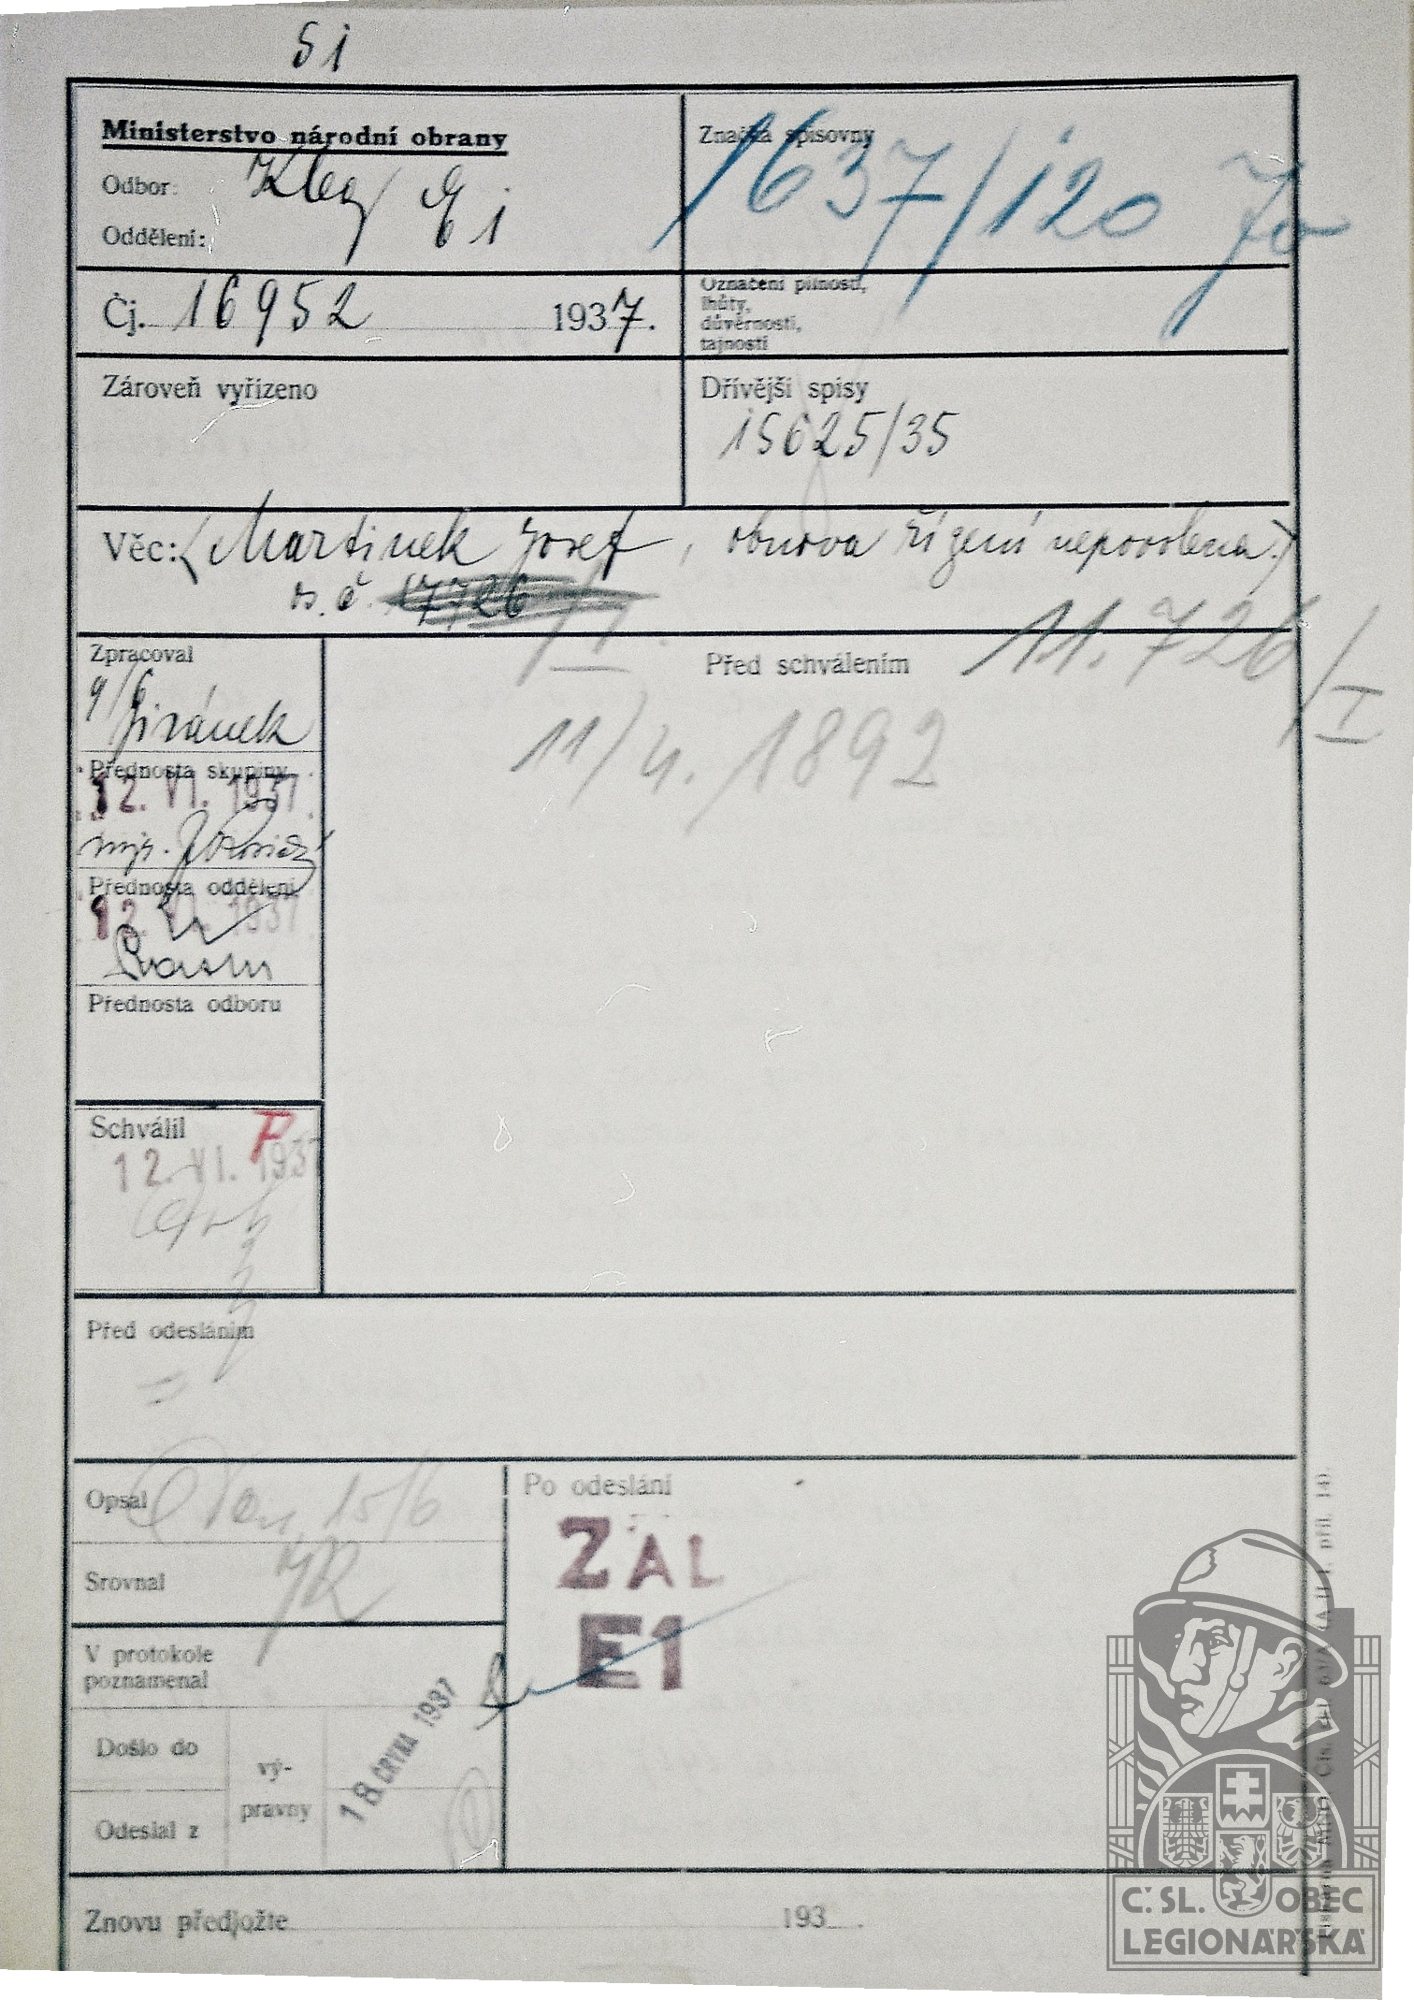 51
Ministerstvo národní obrany
Odbor:
Oddělení:
Značka spisovny
1637/120
Čj. 16952 1937.
Označení pilnosti,
lhůty,
důvěrnosti,
tajnosti
Zároveň vyřízeno
Dřívější spisy
15625/35
Věc: (Martinek Josef, obnova řízení nepovolena.)
11.726/I
Zpracoval
9/6
Jiránek
Před schválením
11/4. 1892
Přednosta skupiny
12. VI. 1937
Přednosta oddělení
12. VI. 1937
Přednosta odboru
Schválil
12. VI. 1937
Před odesláním
Opsal 15/6
Srovnal
V protokole
poznamenal
Došlo do
vý-
pravny
Odeslal z
18 ČRVNA 1937
Po odeslání
ZAL
E1
Znovu předložte 193 .
Č.SL. OBEC
LEGIONÁŘSKÁ